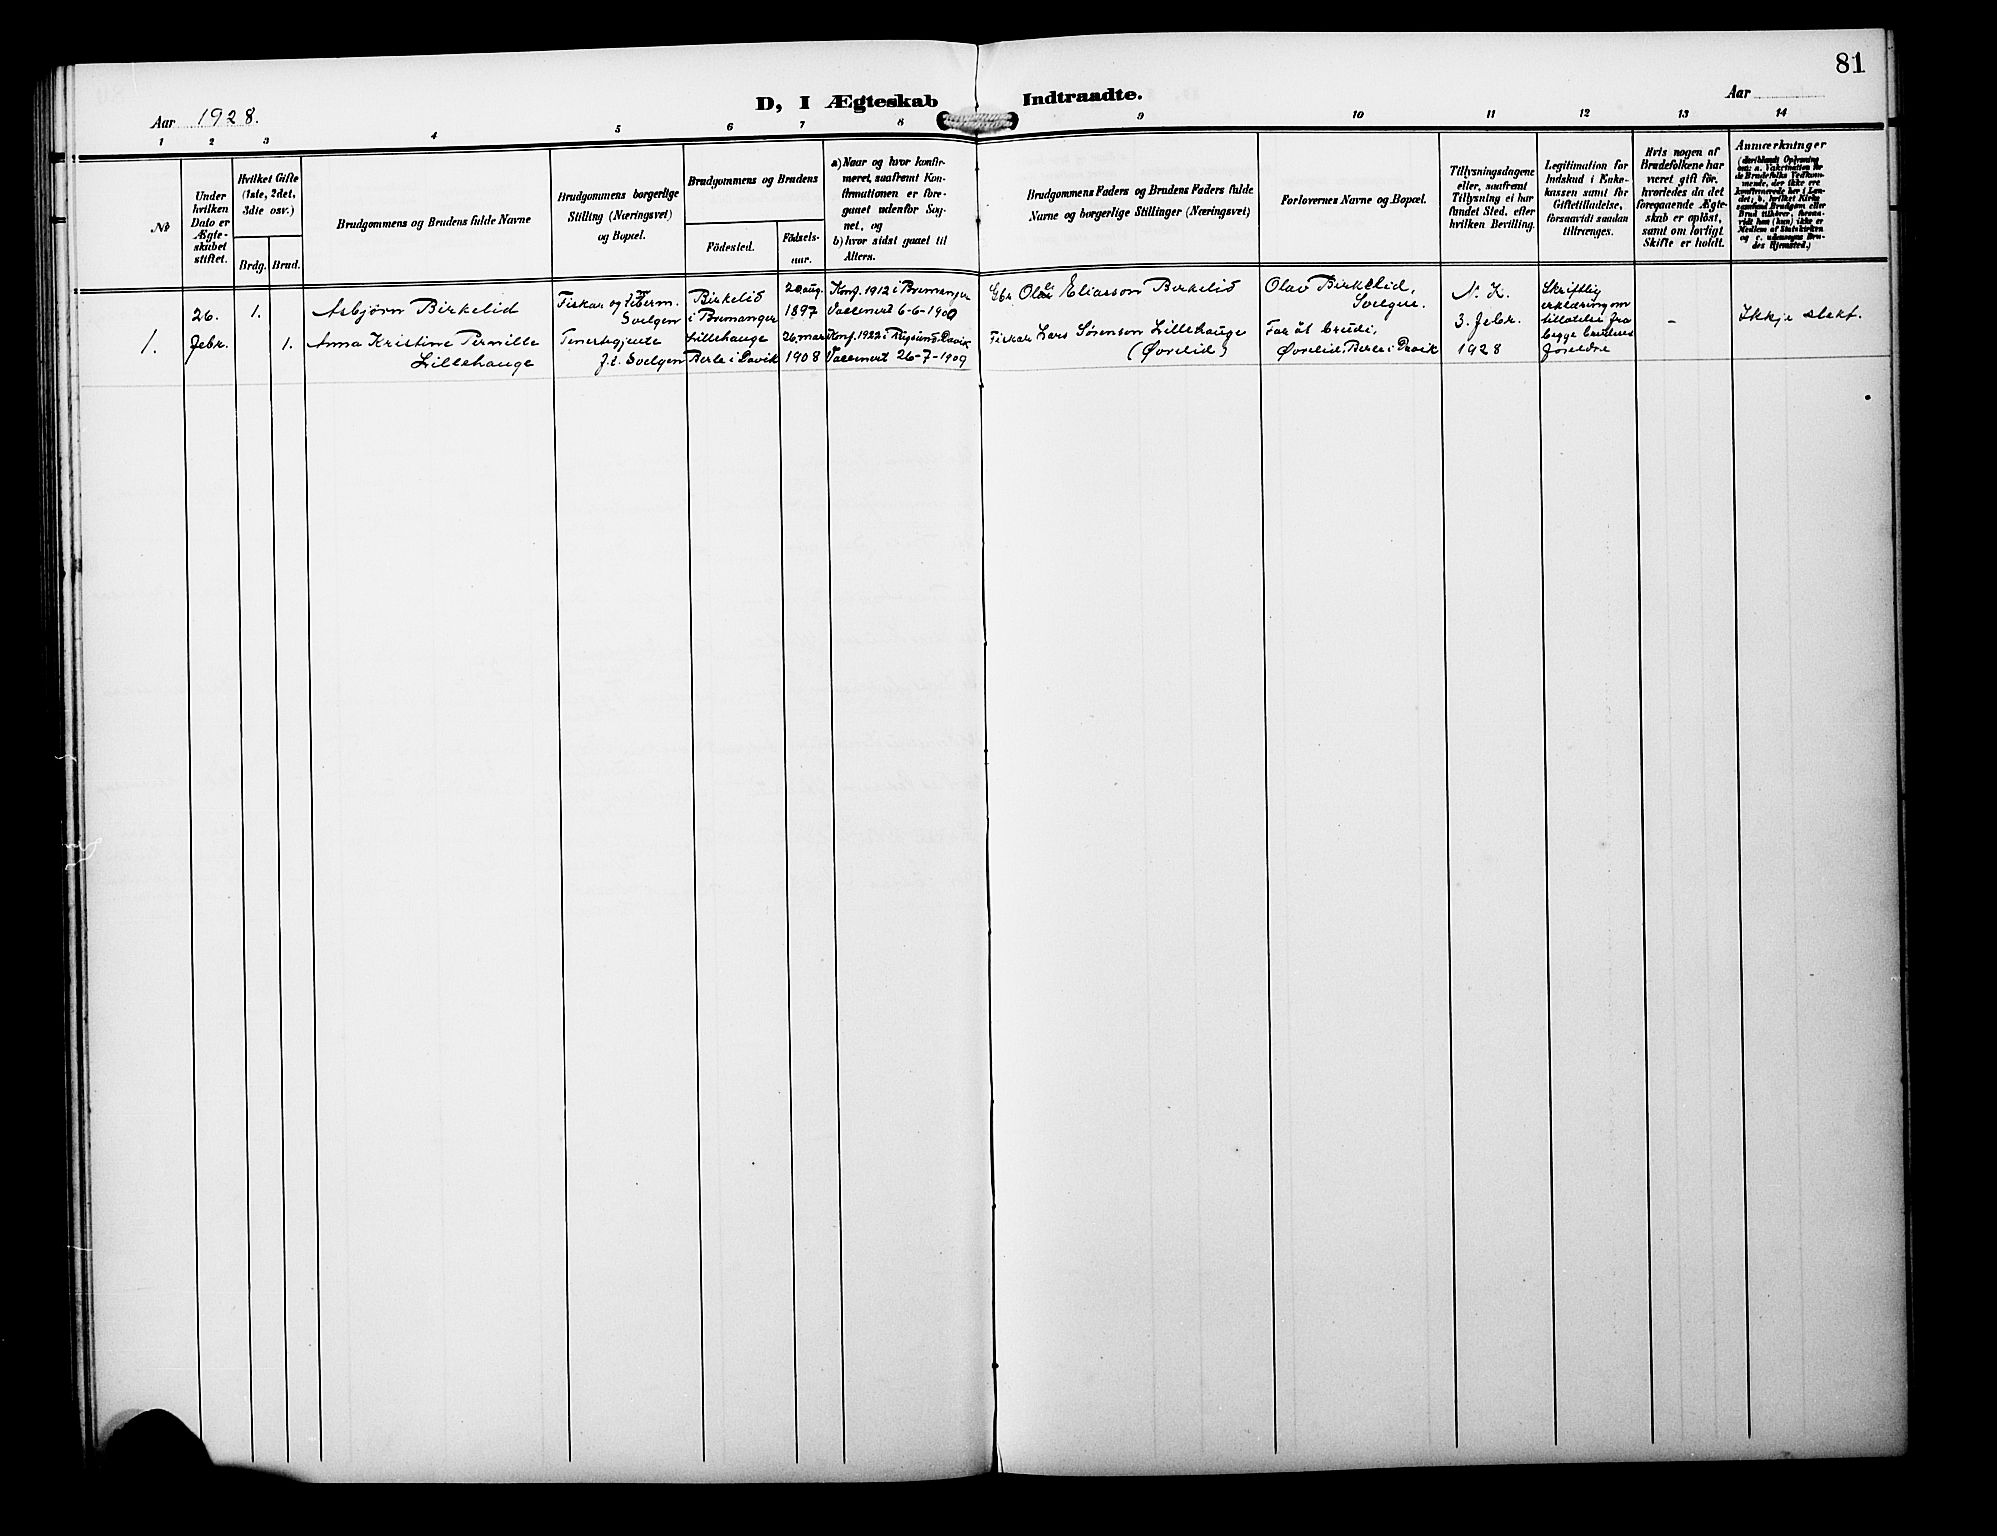 81
D, I Ægteskab Indtraadte.
Aar 1928.
Aar
1 2 3 4 5 6 7 8 9 10 11 12 13 14
No
Under
hvilken
Dato er
Ægte-
skabet
stiftet.
Hvilket Gifte
(1ste, 2det,
3die osv.)
Brdg. Brud.
Brudgommens og Brudens fulde Navne
Brudgommens borgerlige
Stilling (Næringsvei)
og Bopæl.
Brudgommens og Brudens
Födested.
Födsels-
aar.
a) Naar og hvor konfir-
meret, saafremt Kon-
firmationen er fore-
gaaet udenfor Sog-
net, og
b) hvor sidst gaaet til
Alters.
Brudgommens Faders og Brudens Faders fulde
Navne og borgerlige Stillinger (Næringsvei)
Forlovernes Navne og Bopæl.
Tillysningsdagene
eller, saafremt
Tillysning ei har
fundet Sted, efter
hvilken Bevilling.
Legitimation for
Indskud i Enke-
kassen samt for
Giftetilladelse,
forsaavidt saadan
tiltrænges.
Hvis nogen af
Brudefolkene har
været gift før,
hvorledes da det
foregaaende Ægte-
skab er oplöst,
samt om lovligt
Skifte er holdt.
Anmerkninger
(deriblandt Oplysning
om: a. Vakcination for
de Brudefolks Vedkom-
mende, der ikke ere
konfirmerede her i Lan-
det; b. hvilket Kirke-
samfund Brudgom eller
Brud tilhører, forsaa-
vidt han (hun) ikke er
Medlem af Statskirken
og c. udensogns Bru-
des Hjemsted.)
1.
26.
Febr.
1.
Asbjørn Birkelid
Fiskar og
Svelgen
Birkelid
i Bremanger
20 aug.
1897
Konf. 1912 i Bremanger
Vaksinert 6-6-1900
Gbr. Ole Eliasson Birkelid
Olav Birkelid,
Svelgen.
N. K.
3. Febr.
1928
Skriftleg
erklæring om
tillatelse fra
begge brudens
foreldre
-
Ikkje slekt.
1.
Anna Kristine Pernille
Lillehauge
Tenestgjente
f.t. Svelgen
Lillehauge
Berle i Davik
26 mars
1908
Konf. 1922 i Rugsund, Davik
Vaksinert 26-7-1909
Fiskar Lars Sørenson Lillehauge
(Øvrelid)
Far åt brudi,
Øvrelid, Berle i Davik